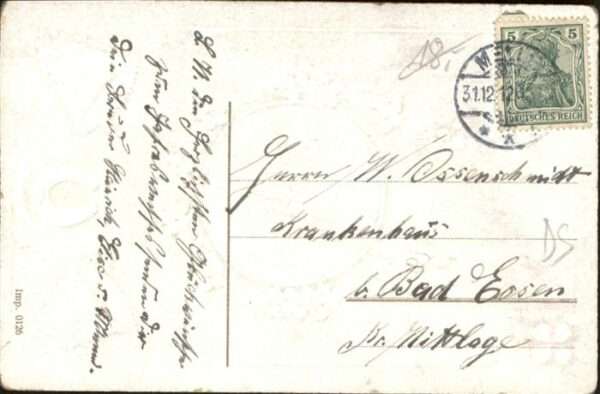 L. W. Die herzlichsten Glückwünsche
zum Jahreswechsel senden Dir
Dein
Imp. 0126
18.-
5 5
DEUTSCHES REICH
31.12.12
Herrn W. Ossenschmidt
Krankenhaus
b. Bad Essen
Kr. Wittlage
DS